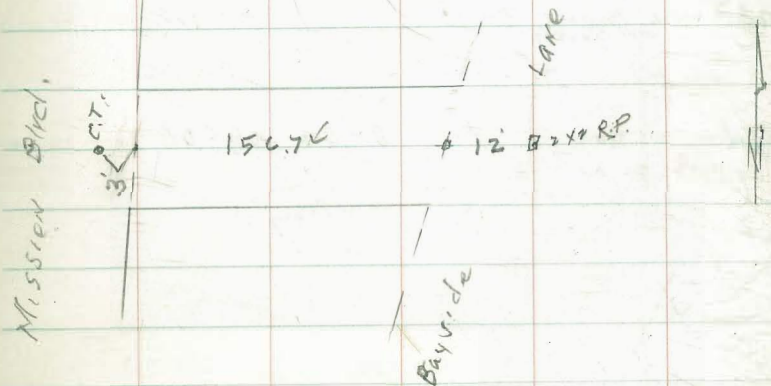 Mission Blvd.
C.T.
3'
12'
R.P.
Lane
Bayside